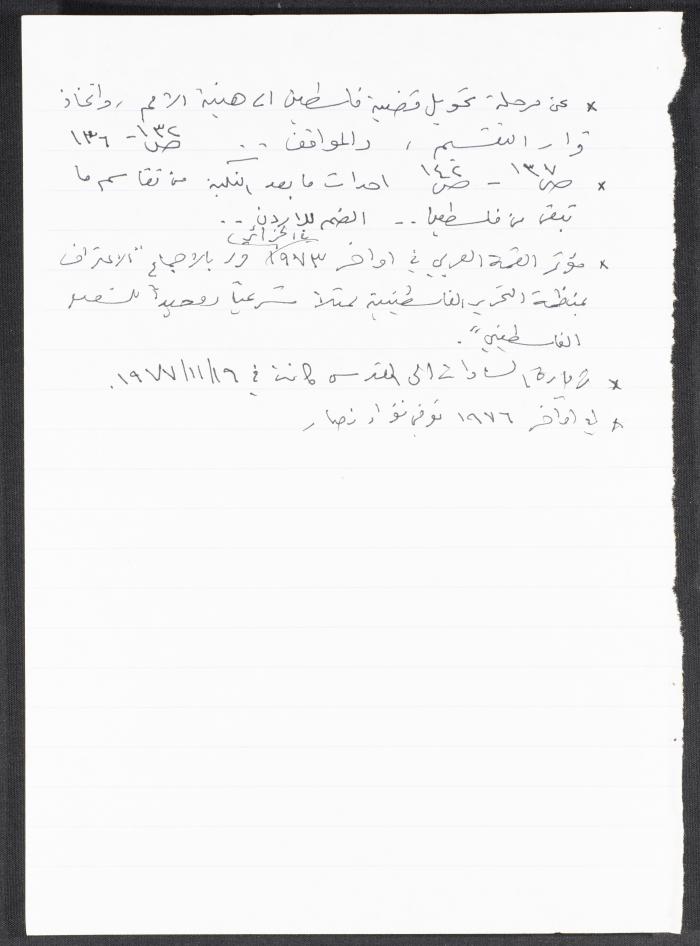 * عن مرحلة تحويل قضية فلسطين الى هيئة الامم , واتخاذ
قرار التقسيم , والمواقف .. ص١٣٢ - ١٣٦
* ص١٣٧ - ص١٤٢ احداث ما بعد النكبة من تقاسم ما
تبقى من فلسطين .. الضم للاردن ..
في الجزائر
* مؤتمر القمة العربي في اواخر ١٩٧٣ بالاجماع "الاعتراف
بمنظمة التحرير الفلسطينية ممثلاً شرعياً ووحيداً للشعب
الفلسطيني".
* زيارة السادات الى القدس كانت في ١٩٧٧/١١/١٩.
* في اواخر ١٩٧٦ توفي فؤاد نصار